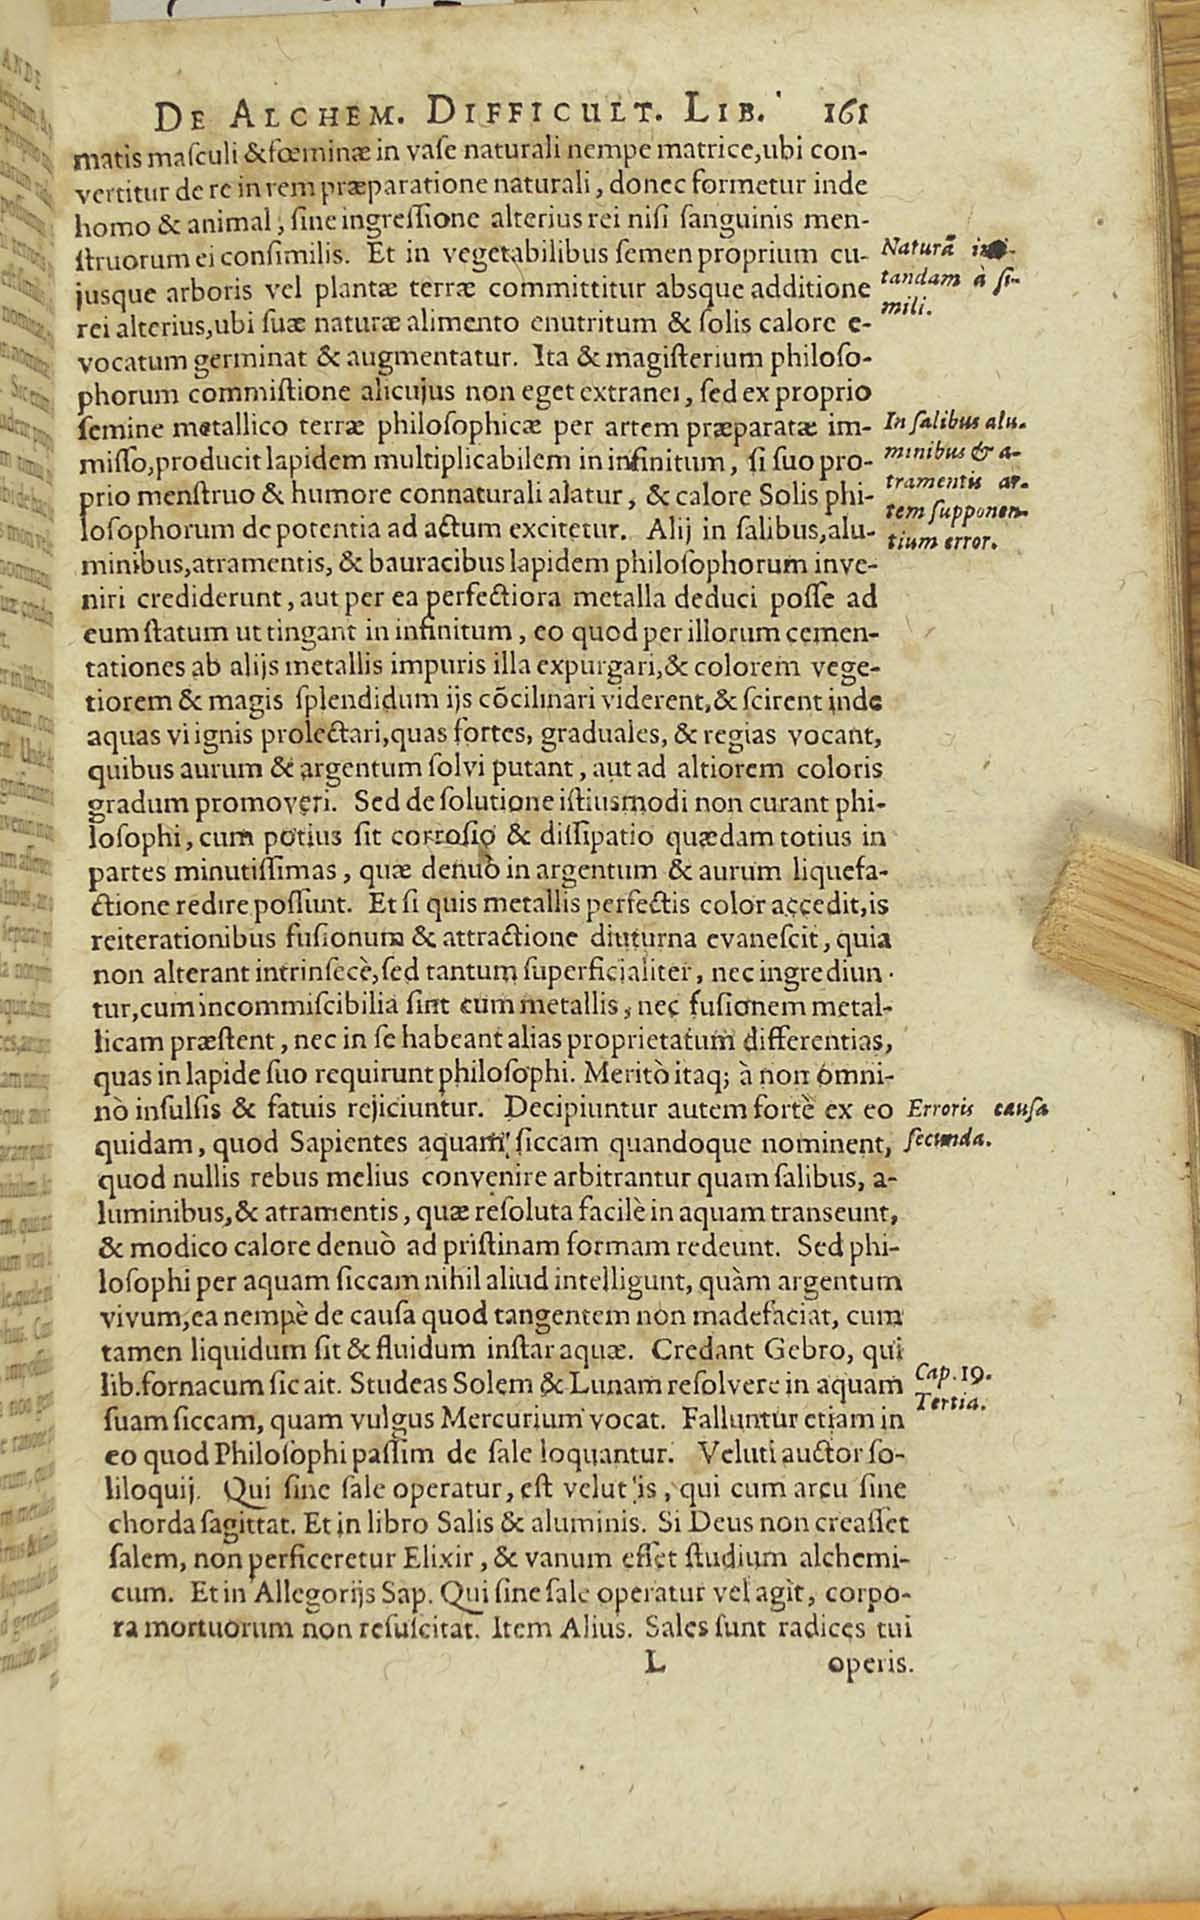 DE ALCHEM. DIFFICULT. LIB. 161
matis masculi & fœminæ in vase naturali nempe matrice, ubi con-
vertitur de re in rem præparatione naturali, donec formetur inde
homo & animal, sine ingressione alterius rei nisi sanguinis men-
struorum ei consimilis. Et in vegetabilibus semen proprium cu-
Naturã imi-
tandam à si-
mili.
jusque arboris vel plantæ terræ committitur absque additione
rei alterius, ubi suæ naturæ alimento enutritum & solis calore e-
vocatum germinat & augmentatur. Ita & magisterium philoso-
phorum commistione alicujus non eget extranei, sed ex proprio
semine metallico terræ philosophicæ per artem præparatæ im-
In salibus alu-
minibus & a-
tramentis ar-
tem supponen-
tium error.
misso, producit lapidem multiplicabilem in infinitum, si suo pro-
prio menstruo & humore connaturali alatur, & calore Solis phi-
losophorum de potentia ad actum excitetur. Alij in salibus, alu-
minibus, atramentis, & bauracibus lapidem philosophorum inve-
niri crediderunt, aut per ea perfectiora metalla deduci posse ad
eum statum ut tingant in infinitum, eo quod per illorum cemen-
tationes ab alijs metallis impuris illa expurgari, & colorem vege-
tiorem & magis splendidum ijs cõcilinari viderent, & scirent inde
aquas vi ignis prolectari, quas fortes, graduales, & regias vocant,
quibus aurum & argentum solvi putant, aut ad altiorem coloris
gradum promoveri. Sed de solutione istiusmodi non curant phi-
losophi, cum potius sit corrosio & dissipatio quædam totius in
partes minutissimas, quæ denuò in argentum & aurum liquefa-
ctione redire possunt. Et si quis metallis perfectis color accedit, is
reiterationibus fusionum & attractione diuturna evanescit, quia
non alterant intrinsecè, sed tantum superficialiter, nec ingrediun-
tur, cum incommiscibilia sint cum metallis, nec fusionem metal-
licam præstent, nec in se habeant alias proprietatum differentias,
quas in lapide suo requirunt philosophi. Meritò itaq; à non omni-
nò insulsis & fatuis rejiciuntur. Decipiuntur autem fortè ex eo
Erroris causa
secunda.
quidam, quod Sapientes aquam siccam quandoque nominent,
quod nullis rebus melius convenire arbitrantur quam salibus, a-
luminibus, & atramentis, quæ resoluta facilè in aquam transeunt,
& modico calore denuò ad pristinam formam redeunt. Sed phi-
losophi per aquam siccam nihil aliud intelligunt, quàm argentum
vivum, ea nempè de causa quod tangentem non madefaciat, cum
tamen liquidum sit & fluidum instar aquæ. Credant Gebro, qui
lib. fornacum sic ait. Studeas Solem & Lunam resolvere in aquam
Cap. 19.
Tertia.
suam siccam, quam vulgus Mercurium vocat. Falluntur etiam in
eo quod Philosophi passim de sale loquantur. Veluti auctor so-
liloquij. Qui sine sale operatur, est velut is, qui cum arcu sine
chorda sagittat. Et in libro Salis & aluminis. Si Deus non creasset
salem, non perficeretur Elixir, & vanum esset studium alchemi-
cum. Et in Allegorijs Sap. Qui sine sale operatur vel agit, corpo-
ra mortuorum non resuscitat. Item Alius. Sales sunt radices tui
L operis.